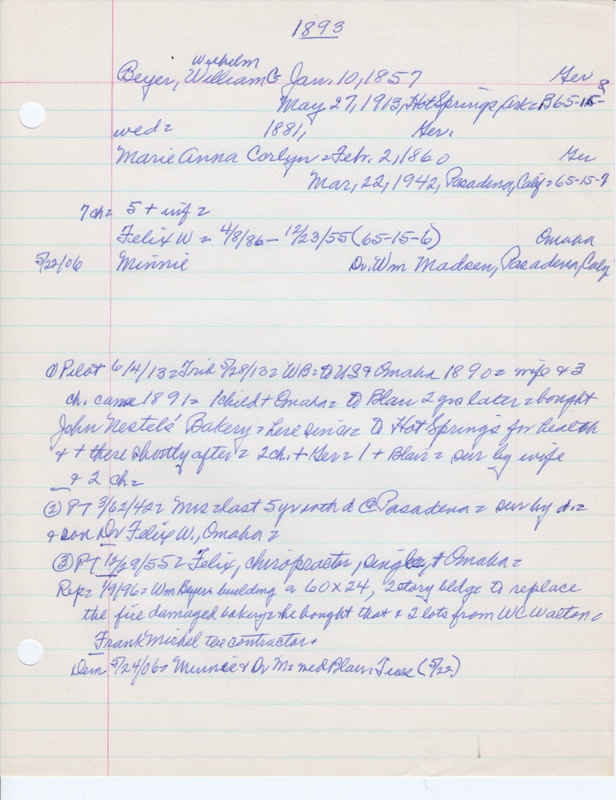 1893
Wilhelm
Beyer, William C Jan. 10, 1857 Ger
May 27, 1913, Hot Springs, Ark = B65-15-8
wed = 1881, Ger.
Marie Anna Corlyn = Febr. 2, 1860 Ger
Mar, 22, 1942, Pasadena, Calif = 65-15-7
7 ch = 5 + inf =
Felix W = 4/8/86 - 12/23/55 (65-15-6) Omaha
5/22/06 Minnie Dr. Wm Madsen, Pasadena, Calif
① Pilot 6/4/13 = Trib 5/28/13 = WB = to US & Omaha 1890 = wife & 3
ch. came 1891 = 1 child + Omaha = to Blair 2 yrs later = bought
John Nestels' Bakery = here since = to Hot Springs for health
& + there shortly after = 2 ch. + Ger = 1 + Blair = sur by wife
& 2 ch =
② PT 3/62/42 = Mrs = last 5 yr with d @ Pasadena = sur by d. =
& son Dr Felix W., Omaha =
③ PT 12/69/55 = Felix, chiropractor, single, + Omaha =
Rep = 1/9/96 = Wm Beyer building a 60 x 24, 2 story bldg = to replace
the fire damaged bakery = he bought that & 2 lots from W C Walton =
Frank Michel the contractor.
Dem 5/24/06 = Minnie & Dr M = wed Blair, Tues (5/22)